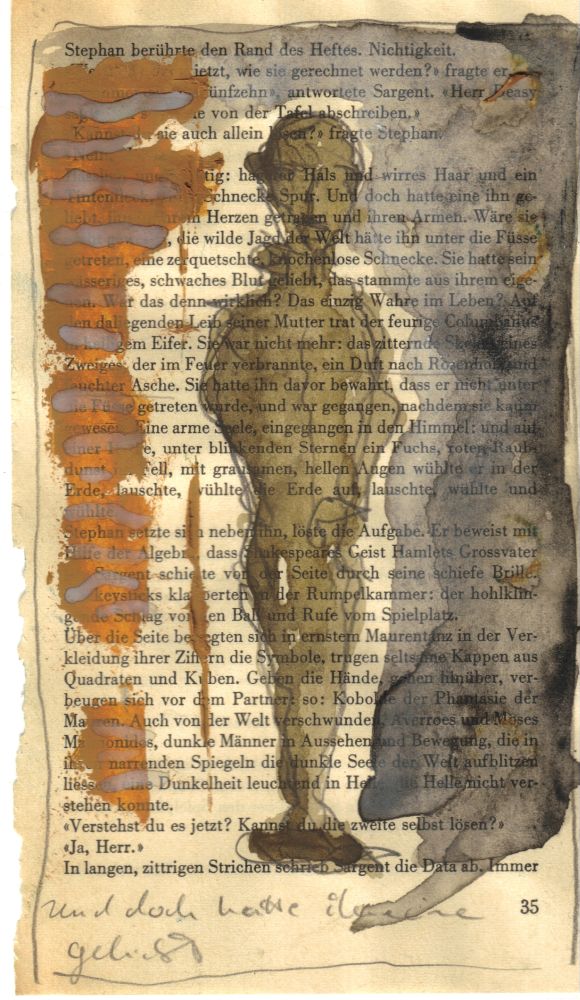 Stephan berührte den Rand des Heftes. Nichtigkeit.
jetzt, wie sie gerechnet werden?» fragte er.
fünfzehn», antwortete Sargent. «Herr Deasy
von der Tafel abschreiben.»
sie auch allein lösen?» fragte Stephan.
hagrer Hals und wirres Haar und ein
Schnecke Spur. Und doch hatte eine ihn ge-
Herzen getragen und ihren Armen. Wäre sie
die wilde Jagd der Welt hätte ihn unter die Füsse
getreten, eine zerquetschte, knochenlose Schnecke. Sie hatte sein
wässeriges, schwaches Blut geliebt, das stammte aus ihrem eige-
nen. War das denn wirklich? Das einzig Wahre im Leben? Auf
den daliegenden Leib seiner Mutter trat der feurige Columbanus
in heiligem Eifer. Sie war nicht mehr: das zitternde Skelett eines
Zweiges, der im Feuer verbrannte, ein Duft nach Rosenholz und
feuchter Asche. Sie hatte ihn davor bewahrt, dass er nicht unter
die Füsse getreten wurde, und war gegangen, nachdem sie kaum
gewesen. Eine arme Seele, eingegangen in den Himmel: und auf
einer unter blinkenden Sternen ein Fuchs, roten Raub-
dunst im Fell, mit grausamen, hellen Augen wühlte er in der
Erde, lauschte, wühlte die Erde auf, lauschte, wühlte und
wühlte.
Stephan setzte sich neben ihn, löste die Aufgabe. Er beweist mit
Hilfe der Algebra, dass Shakespeares Geist Hamlets Grossvater
Sargent schielte von der Seite durch seine schiefe Brille.
klapperten in der Rumpelkammer: der hohlklin-
gende Schlag von den Ball und Rufe vom Spielplatz.
Über die Seite bewegten sich in ernstem Maurentanz in der Ver-
kleidung ihrer Ziffern die Symbole, trugen seltsame Kappen aus
Quadraten und Kuben. Geben die Hände, gehen hinüber, ver-
beugen sich vor dem Partner: so: Kobolde der Phantasie der
Mauren. Auch von der Welt verschwunden, Averroes und Moses
Maimonides, dunkle Männer in Aussehen und Bewegung, die in
ihren narrenden Spiegeln die dunkle Seele der Welt aufblitzen
liessen, eine Dunkelheit leuchtend in Helle, die Helle nicht ver-
stehen konnte.
«Verstehst du es jetzt? Kannst du die zweite selbst lösen?»
«Ja, Herr.»
In langen, zittrigen Strichen schrieb Sargent die Data ab. Immer
35
und doch hatte ihn eine
geliebt